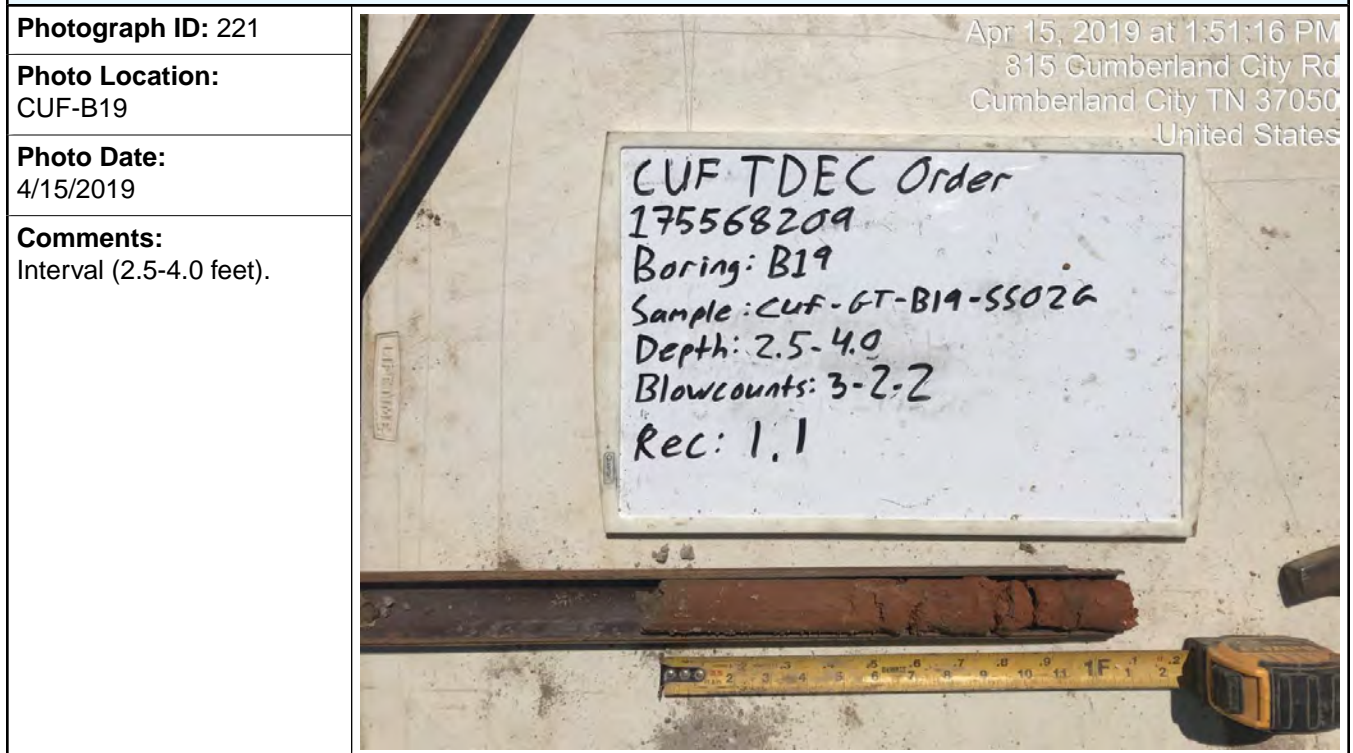 Photograph ID: 221
Photo Location:
CUF-B19
Photo Date:
4/15/2019
Comments:
Interval (2.5-4.0 feet).
Apr 15, 2019 at 1:51:16 PM
815 Cumberland City Rd
Cumberland City TN 37050
United States
CUF TDEC Order
175568209
Boring: B19
Sample: CUF-GT-B19-SS02G
Depth: 2.5-4.0
Blowcounts: 3-2-2
Rec: 1.1
LIFETIME
.3 .4 .5 .6 .7 .8 .9 .1 .2
2 3 4 5 6 7 8 9 10 11 1F 1 2